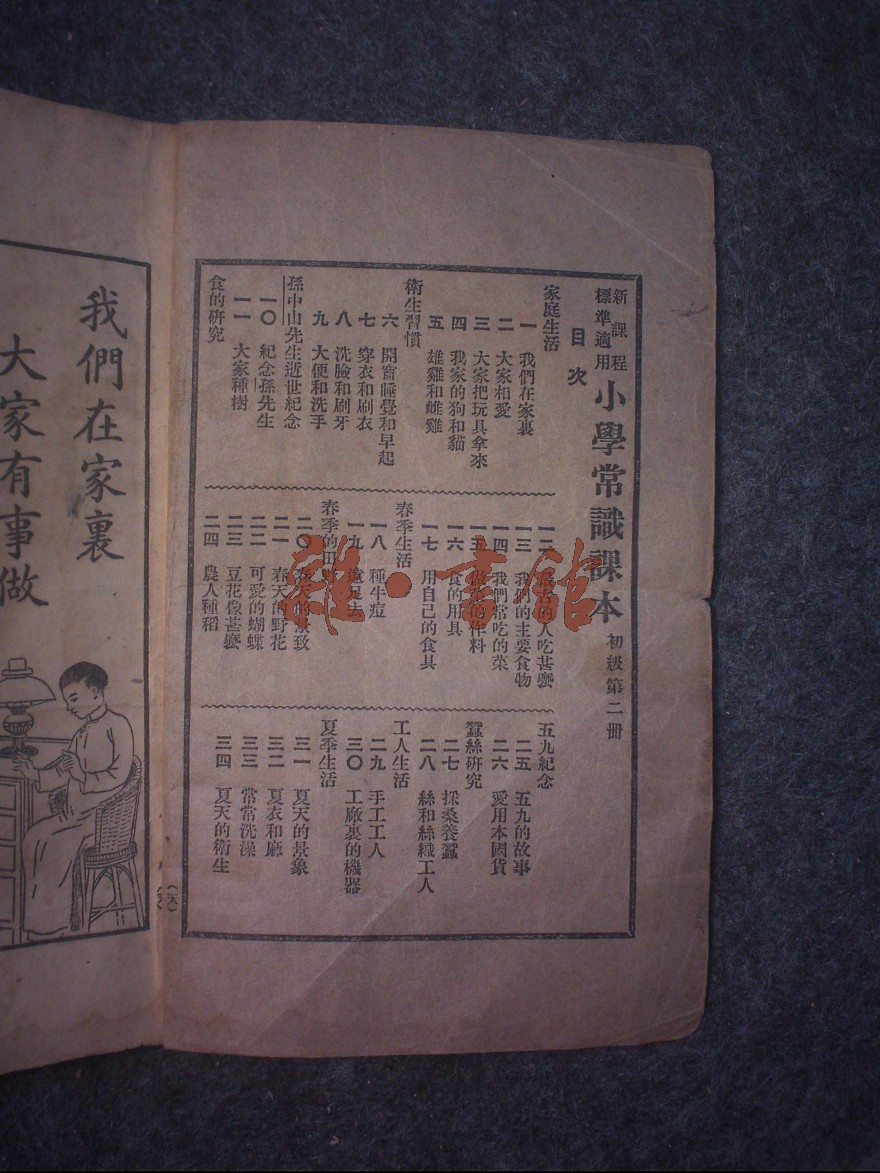 新課程
標準適用
小學常識課本 初級第二冊
目次
家庭生活
一 我們在家裏
二 大家相愛
三 大家把玩具拿來
四 我家的狗和貓
五 雄雞和雌雞
衛生習慣
六 開窗睡覺和早起
七 穿衣和刷衣
八 洗臉和刷牙
九 大便和洗手
孫中山先生逝世紀念
一〇 紀念孫先生
一一 大家種樹
食的研究
一二 的人吃甚麼
一三 我們的主要食物
一四 我們常吃的菜
一五 作料
一六 食的用具
一七 用自己的食具
春季生活
一八 種牛痘
一九 遠足去
春季的田野
二〇 春天的景致
二一 春天的野花
二二 可愛的蝴蝶
二三 豆花像甚麼
二四 農人種稻
五九紀念
二五 五九的故事
二六 愛用本國貨
蠶絲研究
二七 採桑養蠶
二八 絲和絲織工人
工人生活
二九 手工工人
三〇 工廠裏的機器
夏季生活
三一 夏天的景象
三二 夏衣和麻
三三 常常洗澡
三四 夏天的衛生
我們在家裏
大家有事做
雜·書館